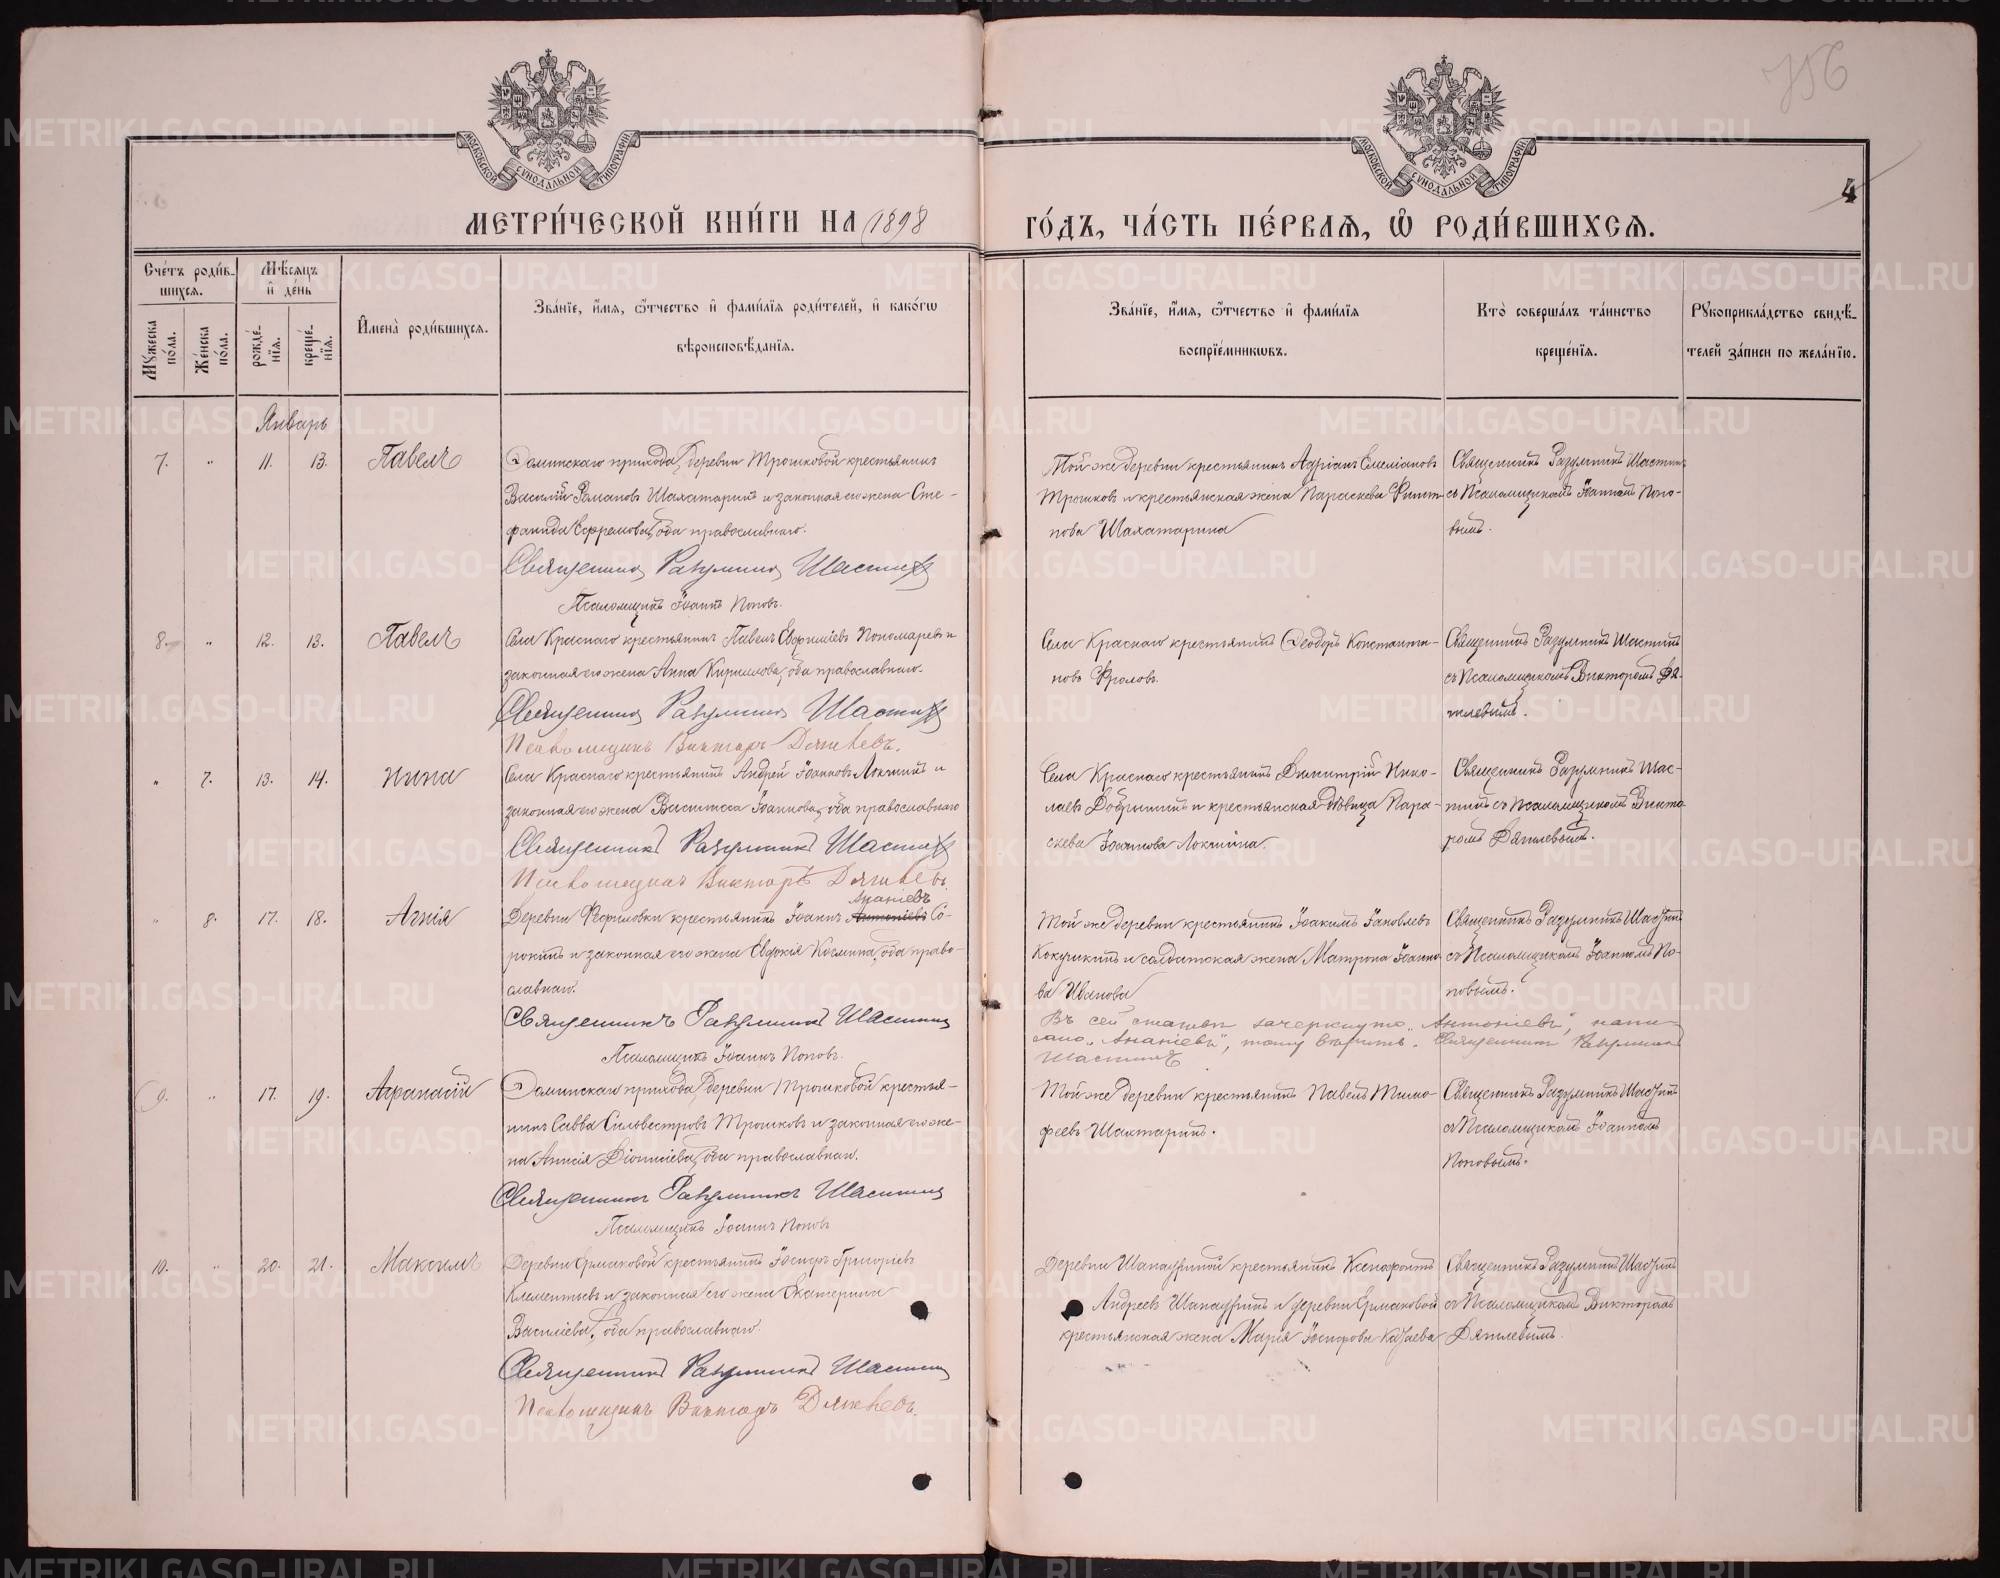 756
4
МОСКОВСКОЙ СѴНОДАЛЬНОЙ ТИПОГРАФІИ
МОСКОВСКОЙ СѴНОДАЛЬНОЙ ТИПОГРАФІИ
МЕТРИ́ЧЕСКОЙ КНИ́ГИ НА 1898 ГО́ДЪ, ЧА́СТЬ ПЕ́РВАѦ, Ѽ РОДИ́ВШИХСѦ.
Сче́тъ роди́в-
шихсѧ.
Мꙋ́жеска по́ла.
Же́нска по́ла.
Мѣ́сѧцъ и҆ де́нь
рожде́-нїѧ.
креще́-нїѧ.
И҆мена̀ роди́вшихсѧ.
Зва́нїе, и҆́мѧ, ѻ҆́тчество и҆ фами́лїѧ роди́телей, и҆ како́гѡ
вѣроисповѣ́данїѧ.
Зва́нїе, и҆́мѧ, ѻ҆́тчество и҆ фами́лїѧ
воспрїе́мникѡвъ.
Кто̀ соверша́лъ та́инство
креще́нїѧ.
Рꙋкоприкла́дство свидѣ́-
телей за́писи по жела́нїю.
Январь
7. " 11. 13. Павелъ
Далинскаго прихода, деревни Трошковой крестьянинъ
Василій Романовъ Шахатаринъ и законная его жена Сте-
фанида Ефремова, оба православнаго.
Священникъ Разумникъ Шастинъ
Псаломщикъ Іоаннъ Поповъ.
Той же деревни крестьянинъ Адріанъ Емеліановъ
Трошковъ и крестьянская жена Параскева Филип-
пова Шахатарина
Священникъ Разумникъ Шастинъ
съ Псаломщикомъ Іоанномъ Попо-
вымъ.
8. " 12. 13. Павелъ
Села Краснаго крестьянинъ Павелъ Евфиміевъ Пономаревъ и
законная его жена Анна Кириллова, оба православнаго.
Священникъ Разумникъ Шастинъ
Псаломщикъ Викторъ Дягилевъ.
Села Краснаго крестьянинъ Ѳеодоръ Константи-
новъ Фроловъ.
Священникъ Разумникъ Шастинъ
съ Псаломщикомъ Викторомъ Дя-
гилевымъ.
" 7. 13. 14. Нина
Села Краснаго крестьянинъ Андрей Іоанновъ Локтинъ и
законная его жена Василисса Іоаннова, оба православнаго
Священникъ Разумникъ Шастинъ
Псаломщикъ Викторъ Дягилевъ.
Села Краснаго крестьянинъ Димитрій Нико-
лаевъ Добрынинъ и крестьянская дѣвица Пара-
скева Іоаннова Локтина.
Священникъ Разумникъ Шас-
тинъ съ Псаломщикомъ Викто-
ромъ Дягилевымъ.
" 8. 17. 18. Агнія
Ананіевъ
Деревни Ѳерминовки крестьянинъ Іоаннъ Антоніевъ Со-
рокинъ и законная его жена Евдокія Космина, оба право-
славнаго.
Священникъ Разумникъ Шастинъ
Псаломщикъ Іоаннъ Поповъ.
Той же деревни крестьянинъ Іоакимъ Іаковлевъ
Кокушкинъ и солдатская жена Матрона Іоанно-
ва Иванова
Въ сей статьи зачеркнуто "Антоніевъ", напи-
сано "Ананіевъ", тому вѣрить. Священникъ Разумникъ
Шастинъ
Священникъ Разумникъ Шастинъ
съ Псаломщикомъ Іоанномъ По-
повымъ.
9. " 17. 19. Афанасій
Далинскаго прихода, деревни Трошковой крестья-
нинъ Савва Сильвестровъ Трошковъ и законная его же-
на Анисія Діонисіева, оба православнаго.
Священникъ Разумникъ Шастинъ
Псаломщикъ Іоаннъ Поповъ
Той же деревни крестьянинъ Павелъ Тимо-
феевъ Шахтаринъ.
Священникъ Разумникъ Шастинъ
съ Псаломщикомъ Іоанномъ
Поповымъ.
10. " 20. 21. Максимъ
Деревни Ермаковой крестьянинъ Іосифъ Григоріевъ
Клементьевъ и законная его жена Екатерина
Василіева, оба православнаго.
Священникъ Разумникъ Шастинъ
Псаломщикъ Викторъ Дягилевъ.
Деревни крестьянинъ Ксенофонтъ
Андреевъ и деревни Ермаковой
крестьянская жена Марія Іосифова Казаева
Священникъ Разумникъ Шастинъ
съ Псаломщикомъ Викторомъ
Дягилевымъ.
METRIKI.GASO-URAL.RU